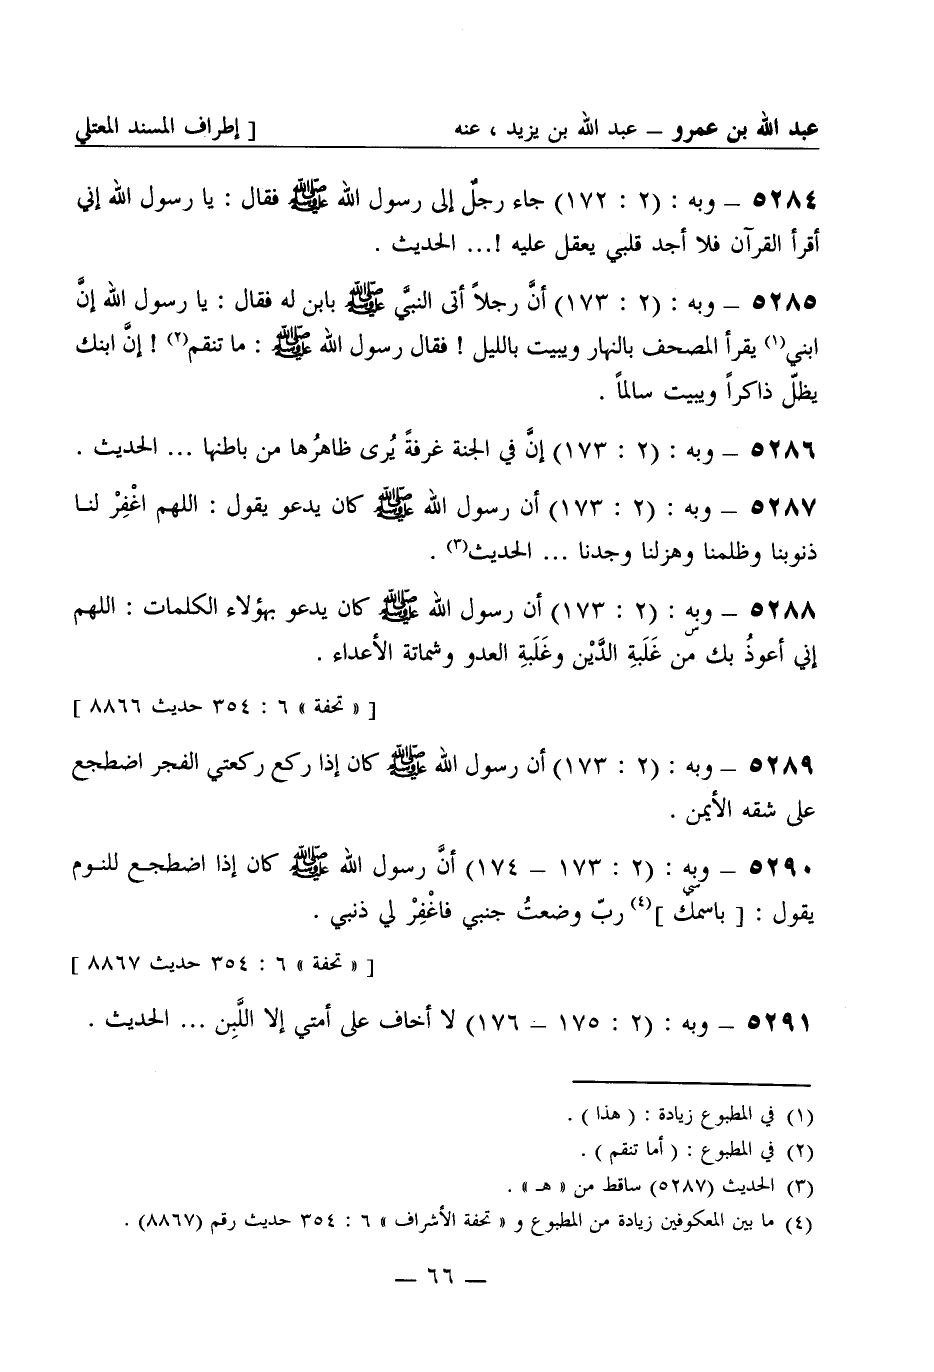 عبد الله بن عمرو – عبد الله بن يزيد ، عنه [ إطراف المسند المعتلي
٥٢٨٤ – وبه : (٢ : ١٧٢) جاء رجلٌ إلى رسول الله ﷺ فقال : يا رسول الله إني
أقرأ القرآن فلا أجد قلبي يعقل عليه !... الحديث .
٥٢٨٥ – وبه : (٢ : ١٧٣) أنَّ رجلاً أتى النبيَّ ﷺ بابن له فقال : يا رسول الله إنَّ
ابني(١) يقرأ المصحف بالنهار ويبيت بالليل ! فقال رسول الله ﷺ : ما تنقم(٢) ! إنَّ ابنك
يظلّ ذاكراً ويبيت سالماً .
٥٢٨٦ – وبه : (٢ : ١٧٣) إنَّ في الجنة غرفةً يُرى ظاهرُها من باطنها ... الحديث .
٥٢٨٧ – وبه : (٢ : ١٧٣) أن رسول الله ﷺ كان يدعو يقول : اللهم اغْفِرْ لنا
ذنوبنا وظلمنا وهزلنا وجدنا ... الحديث(٣) .
٥٢٨٨ – وبه : (٢ : ١٧٣) أن رسول الله ﷺ كان يدعو بهؤلاء الكلمات : اللهم
س
إني أعوذُ بك من غَلَبَةِ الدَّيْن وغَلَبَةِ العدو وشماتة الأعداء .
[ « تحفة » ٦ : ٣٥٤ حديث ٨٨٦٦ ]
٥٢٨٩ – وبه : (٢ : ١٧٣) أن رسول الله ﷺ كان إذا ركع ركعتي الفجر اضطجع
على شقه الأيمن .
٥٢٩٠ – وبه : (٢ : ١٧٣ – ١٧٤) أنَّ رسول الله ﷺ كان إذا اضطجع للنوم
سي
يقول : [ باسمك ](٤) ربّ وضعتُ جنبي فاغْفِرْ لي ذنبي .
[ « تحفة » ٦ : ٣٥٤ حديث ٨٨٦٧ ]
٥٢٩١ – وبه : (٢ : ١٧٥ – ١٧٦) لا أخاف على أمتي إلا اللَّبِن ... الحديث .
(١) في المطبوع زيادة : ( هذا ) .
(٢) في المطبوع : ( أما تنقم ) .
(٣) الحديث (٥٢٨٧) ساقط من « هـ » .
(٤) ما بين المعكوفين زيادة من المطبوع و « تحفة الأشراف » ٦ : ٣٥٤ حديث رقم (٨٨٦٧) .
– ٦٦ –